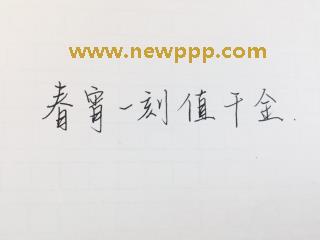 www.newppp.com
春宵一刻值千金.